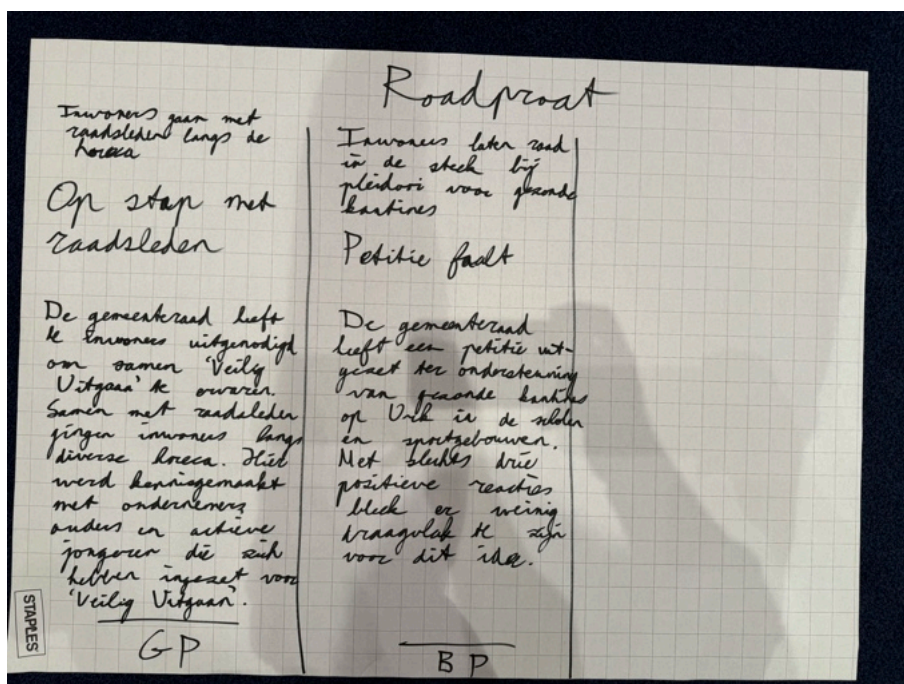 Roadproat
Inwoners gaan met
raadsleden langs de
horeca
Op stap met
raadsleden
De gemeenteraad heeft
te inwoners uitgenodigd
om samen 'Veilig
Uitgaan' te ervaren.
Samen met raadsleden
gingen inwoners langs
diverse horeca. Hier
werd kennisgemaakt
met ondernemers
ouders en actieve
jongeren die zich
hebben ingezet voor
'Veilig Uitgaan'.
GP
Inwoners laten raad
in de steek bij
pleidooi voor gezonde
kantines
Petitie faalt
De gemeenteraad
heeft een petitie uit-
gezet ter ondersteuning
van gezonde kantines
op Urk in de scholen
en sportgebouwen.
Met slechts drie
positieve reacties
bleek er weinig
draagvlak te zijn
voor dit idee.
BP
STAPLES